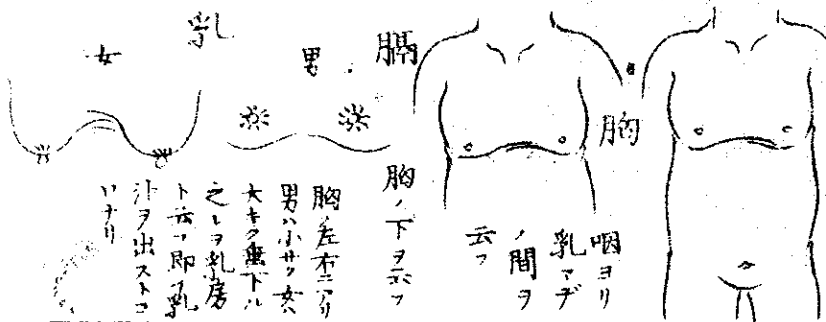 胸
咽ヨリ
乳マデ
ノ間ヲ
云フ
膈
胸ノ下ヲ云フ
乳
男
女
胸ノ左右ニアリ
男ハ小サク女ハ
大キク垂下ル
之レヲ乳房
ト云フ即チ乳
汁ヲ出ストコ
ロナリ